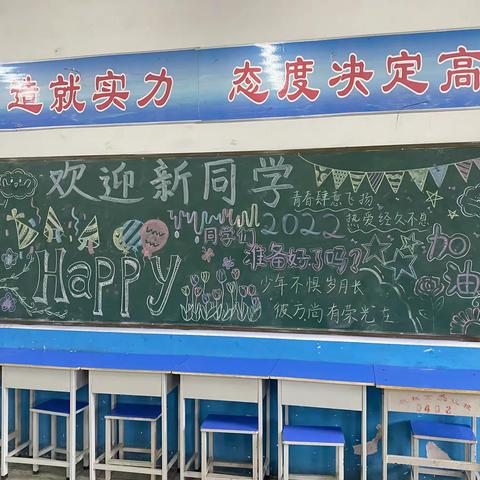 造就实力 态度决定高
欢迎新同学
青春肆意飞扬
2022
热爱经久不息
同学们
准备好了吗？
加油
HAPPY
少年不惧岁月长
彼方尚有荣光在
0402